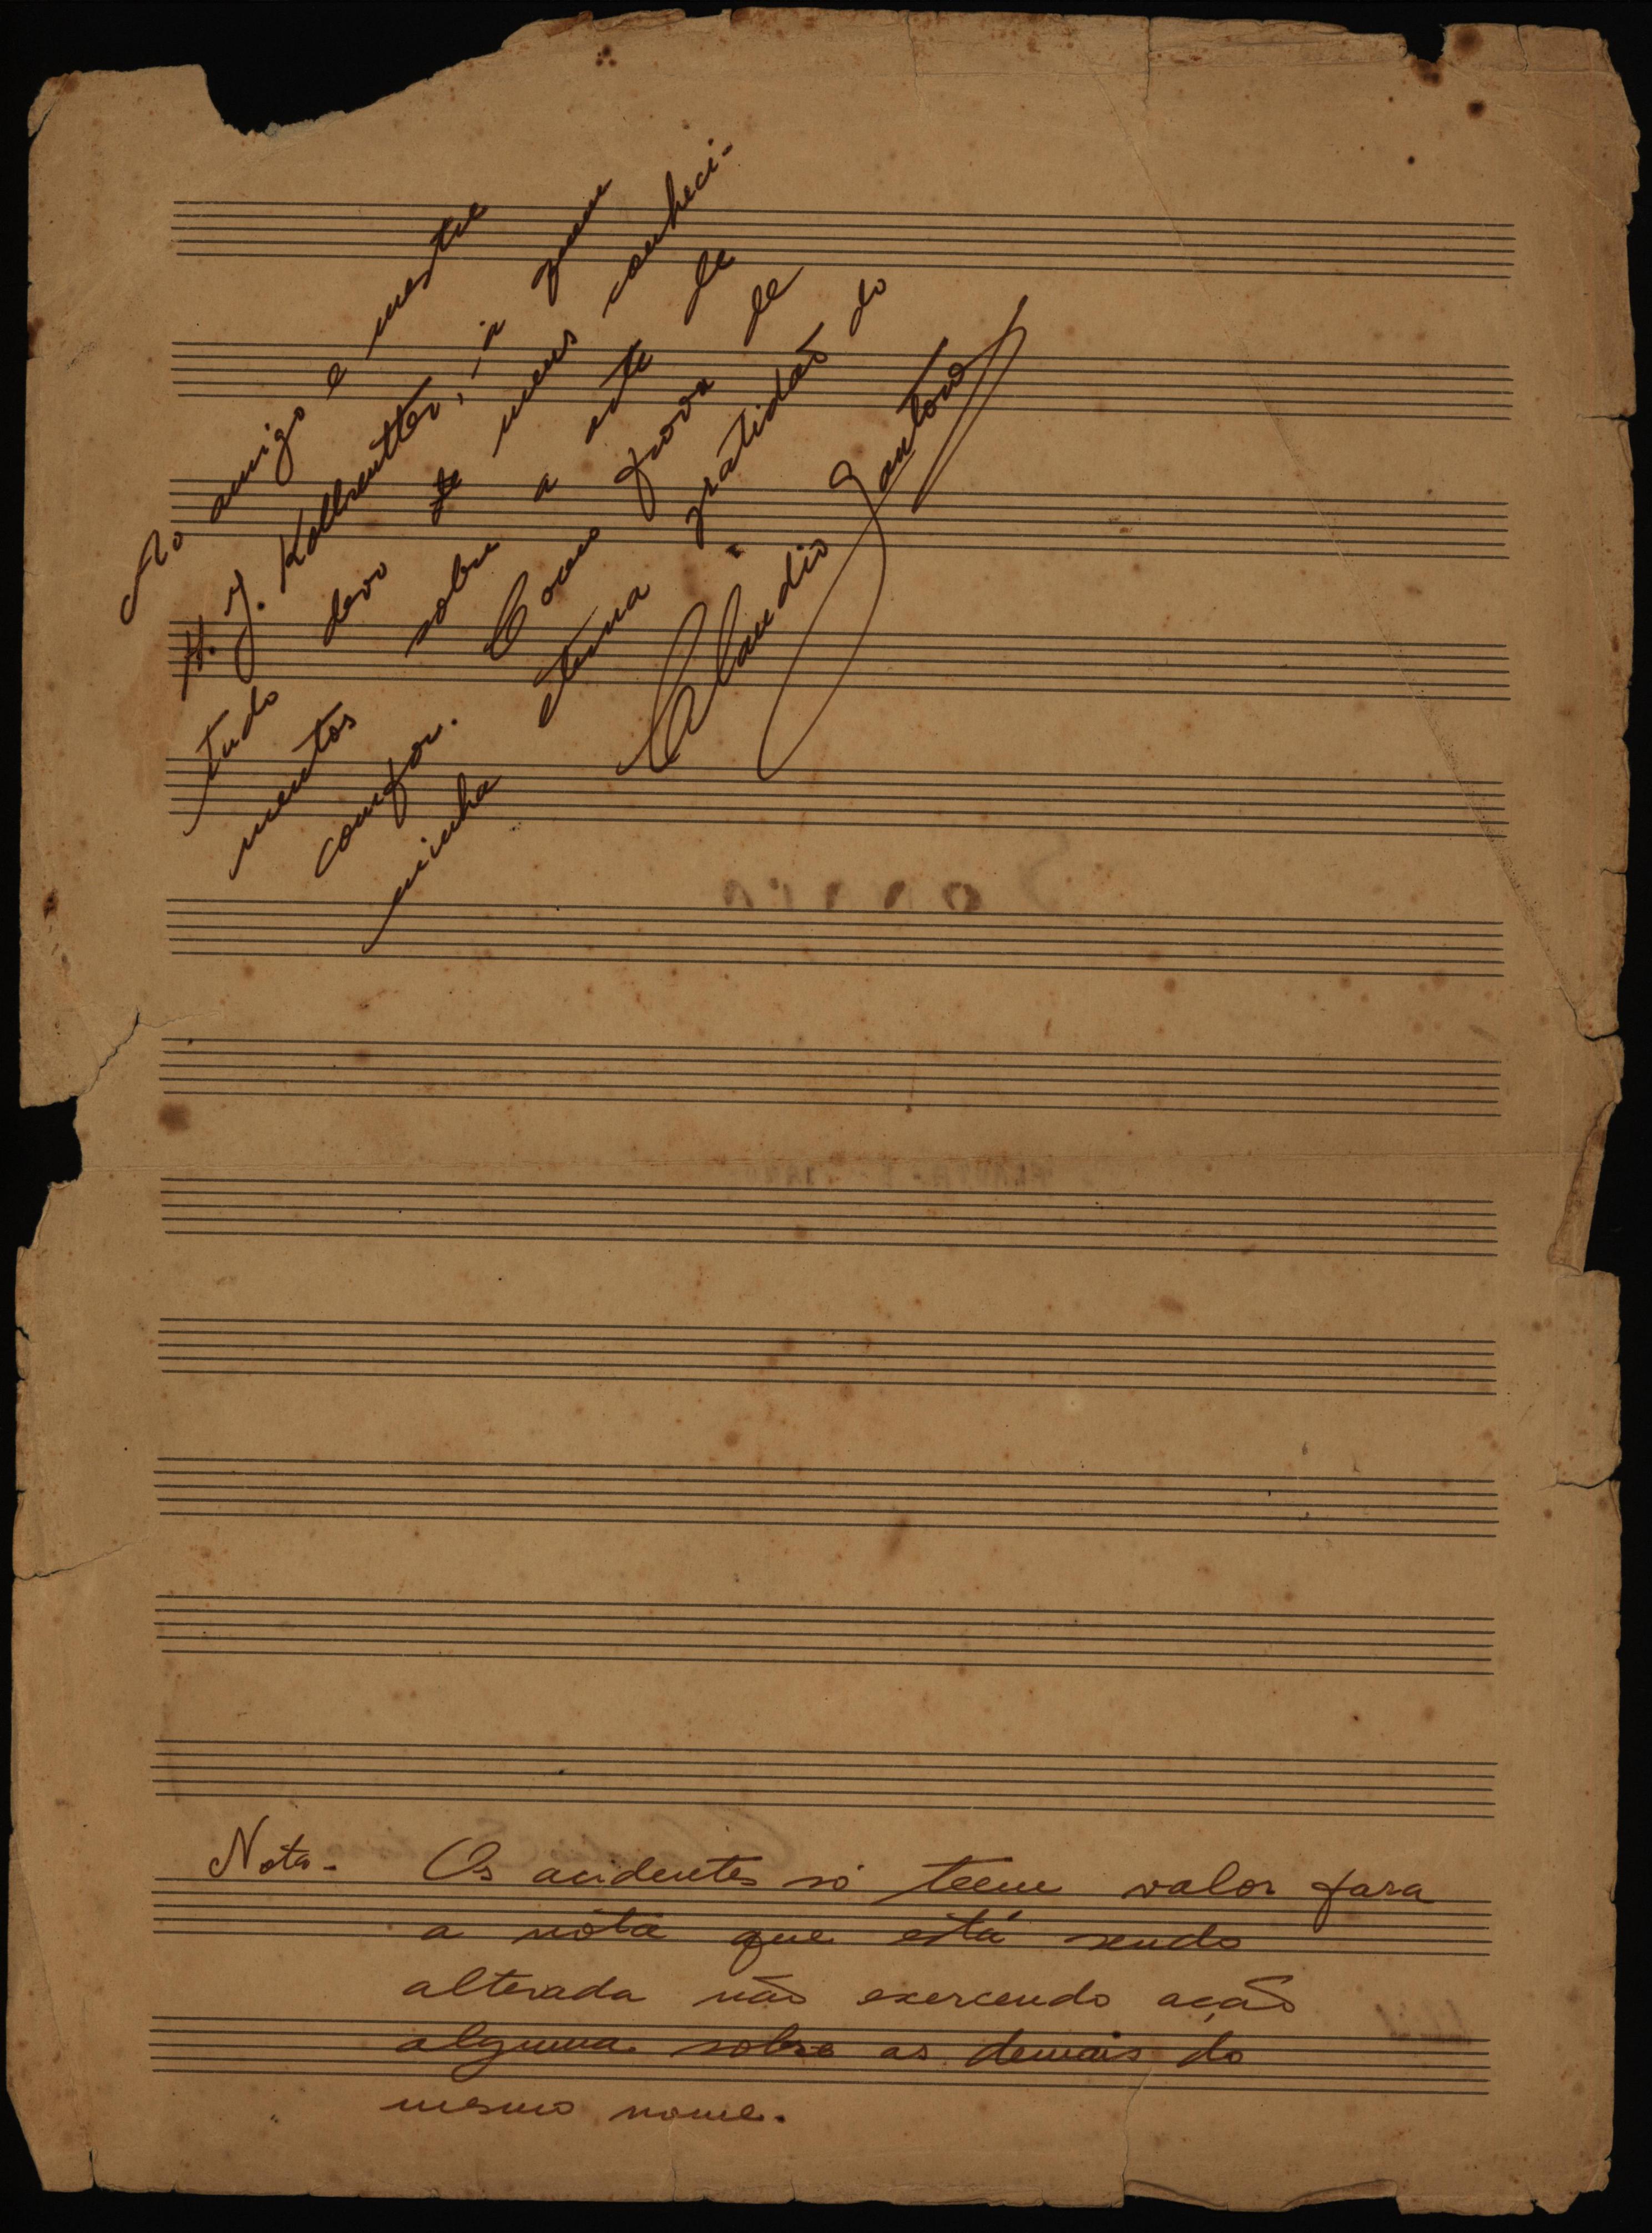 Ao amigo e mestre
H. J. Kollreutter, à quem
tudo devo de meus conheci-
mentos sobre a arte de
compor. Como prova de
minha eterna gratidão do
Claudio Santoro
Nota - Os acidentes só teem valor para
a nóta que está sendo
alterada não exercendo ação
alguma sobre as demais do
mesmo nome.